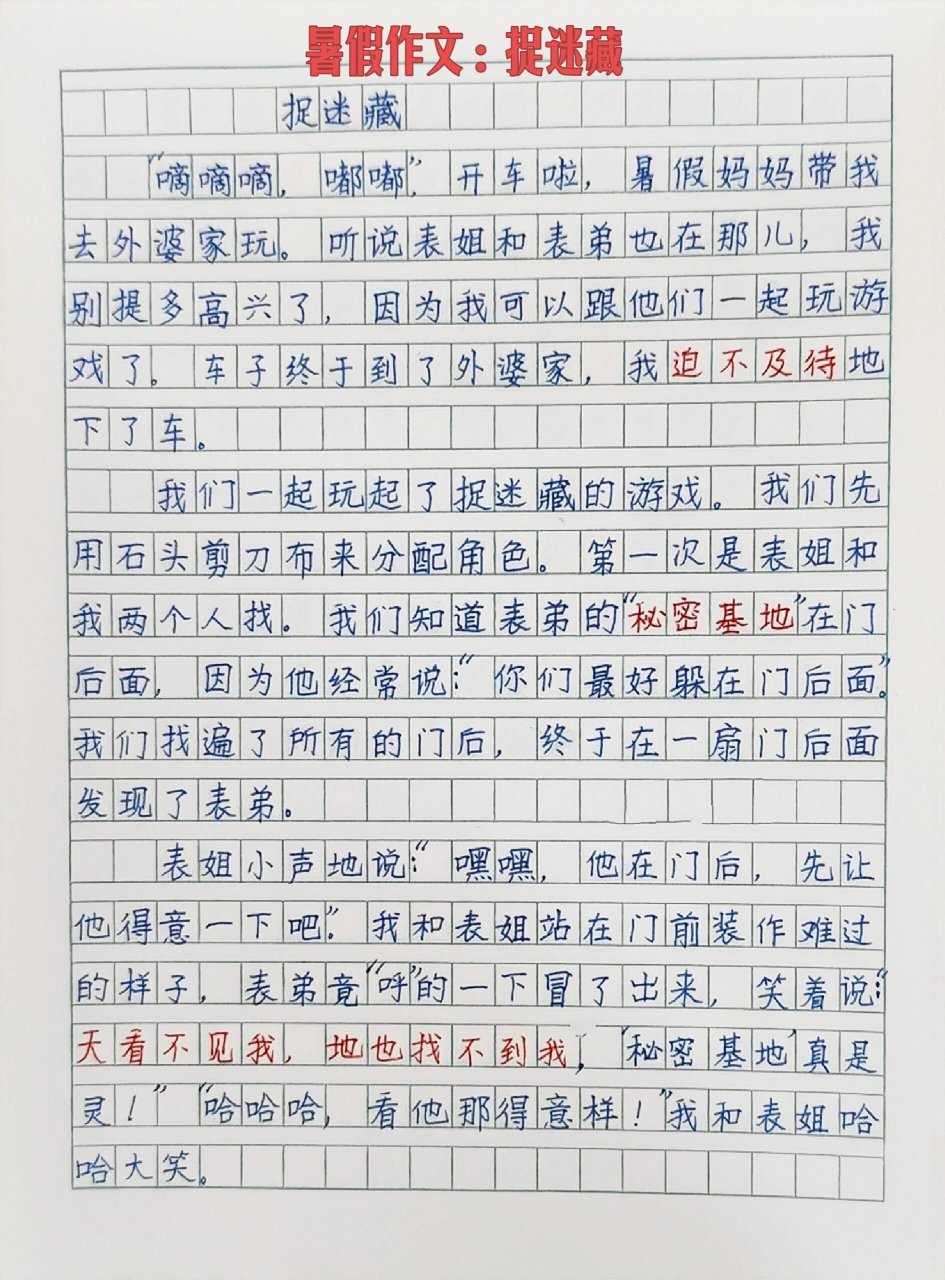 暑假作文：捉迷藏
捉迷藏
“嘀嘀嘀，嘟嘟”，开车啦，暑假妈妈带我
去外婆家玩。听说表姐和表弟也在那儿，我
别提多高兴了，因为我可以跟他们一起玩游
戏了。车子终于到了外婆家，我迫不及待地
下了车。
我们一起玩起了捉迷藏的游戏。我们先
用石头剪刀布来分配角色。第一次是表姐和
我两个人找。我们知道表弟的“秘密基地”在门
后面，因为他经常说：“你们最好躲在门后面”。
我们找遍了所有的门后，终于在一扇门后面
发现了表弟。
表姐小声地说：“嘿嘿，他在门后，先让
他得意一下吧”。我和表姐站在门前装作难过
的样子，表弟竟“呼”的一下冒了出来，笑着说：“
天看不见我，地也找不到我，‘秘密基地’真是
灵！”“哈哈哈，看他那得意样！”我和表姐哈
哈大笑。